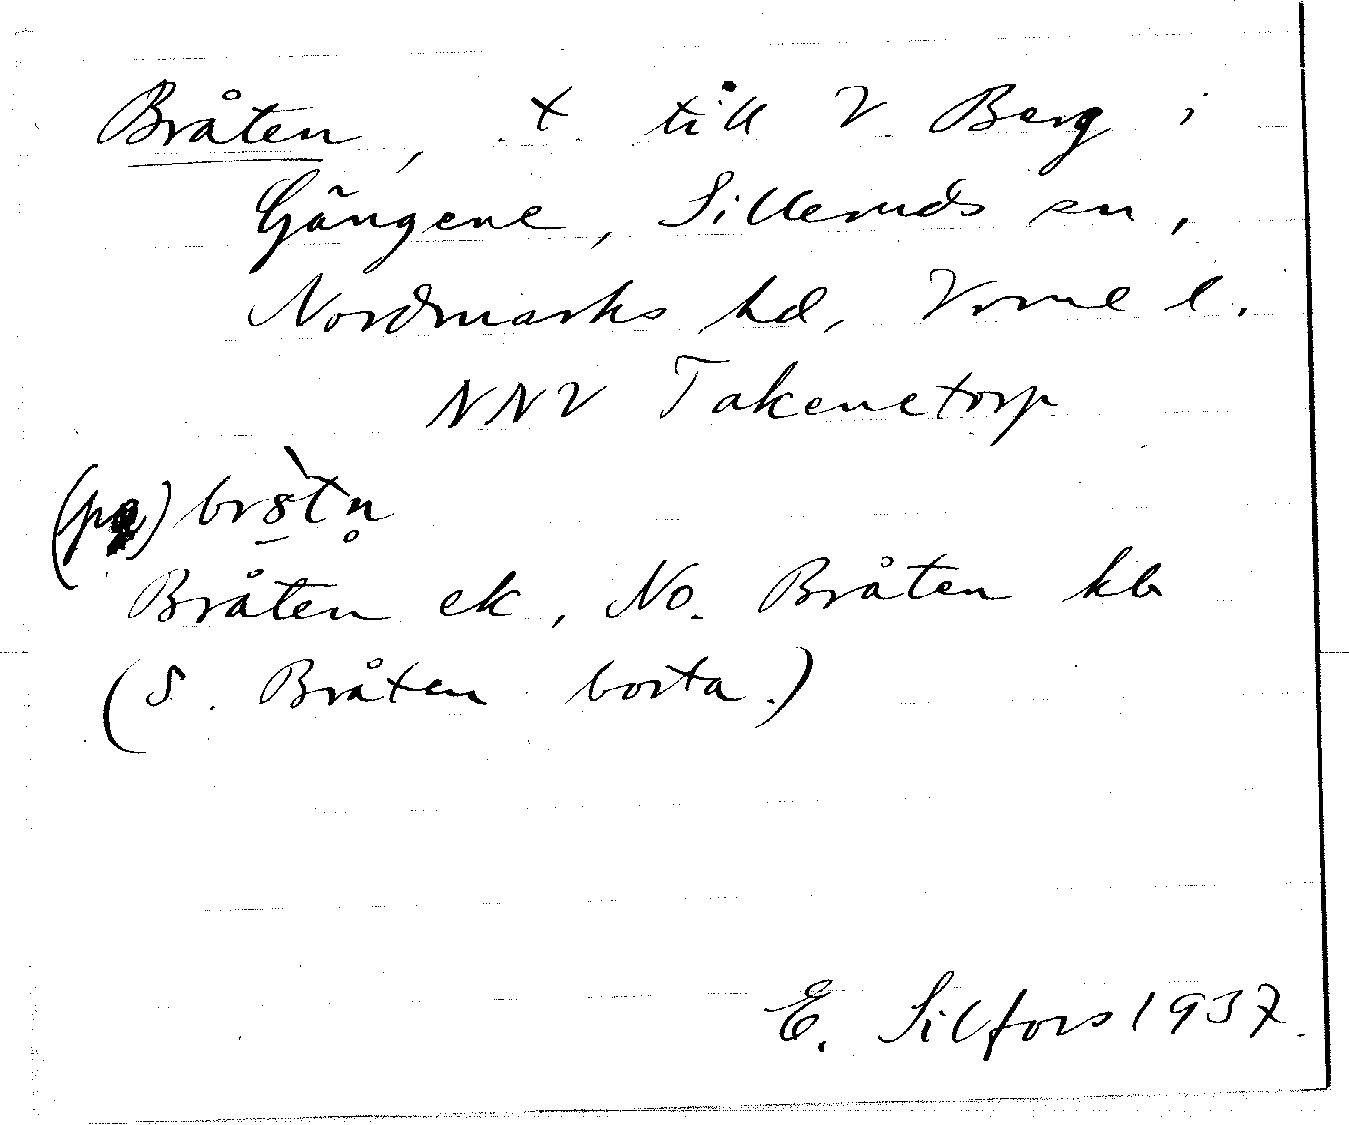 Bråten, t till V Berg i
Gängene, Silleruds sn,
Nordmarks hd, Vrml l.
NNV Takenetorp
(på) brs̱̀tn̥
Bråten ek, No. Bråten kb
(S. Bråten borta.)
E. Silfors 1937.